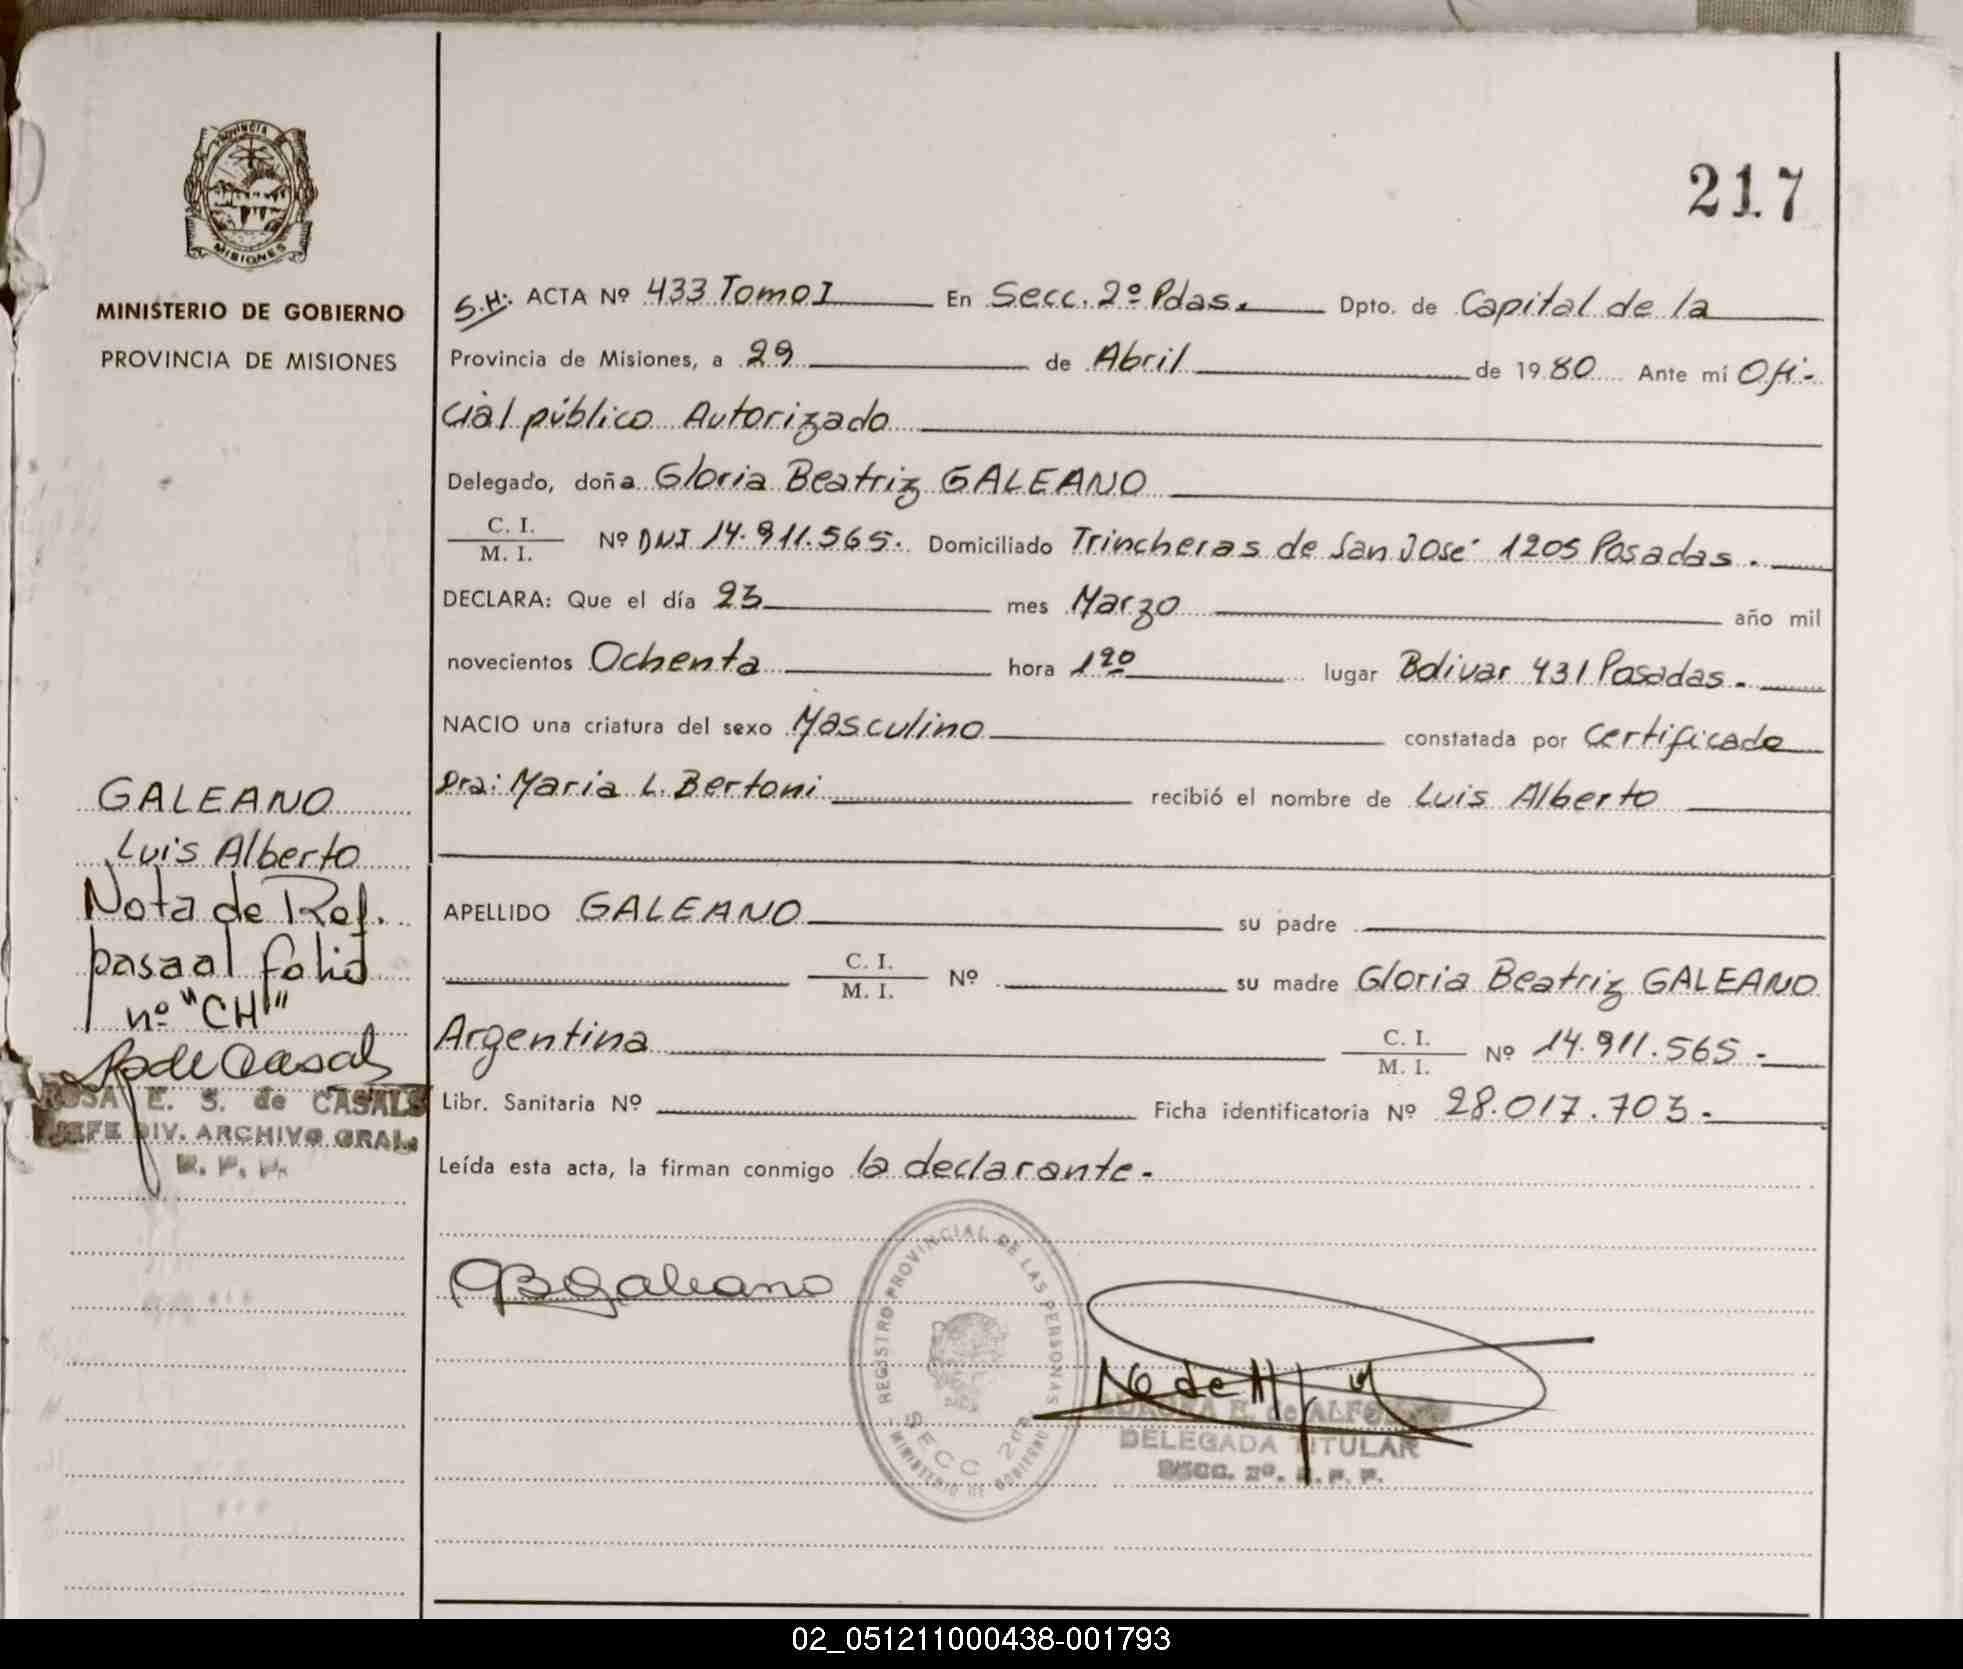 217
PROVINCIA DE
MISIONES
MINISTERIO DE GOBIERNO
PROVINCIA DE MISIONES
S.H: ACTA Nº 433 Tomo I En Secc. 2º Pdas. Dpto. de Capital de la
Provincia de Misiones, a 29 de Abril de 1980 Ante mí Ofi-
cial público Autorizado
Delegado, doña Gloria Beatriz GALEANO
C. I.
M. I. Nº DNI 14.911.565. Domiciliado Trincheras de San José 1205 Posadas.
DECLARA: Que el día 23 mes Marzo año mil
novecientos Ochenta hora 120 lugar Bolivar 431 Posadas.
NACIO una criatura del sexo Masculino constatada por Certificado
Dra: Maria L. Bertoni recibió el nombre de Luis Alberto
APELLIDO GALEANO su padre
C. I.
M. I. Nº su madre Gloria Beatriz GALEANO
Argentina C. I.
M. I. Nº 14.911.565-
Libr. Sanitaria Nº Ficha identificatoria Nº 28.017.703-
Leída esta acta, la firman conmigo la declarante-
GBGaleano
REGISTRO PROVINCIAL DE LAS PERSONAS
MINISTERIO DE GOBIERNO
SECC 2º
E. de
DELEGADA TITULAR
SECC. 2º. R. P. P.
GALEANO
Luis Alberto
Nota de Ref.
pasa al folio
nº "CH"
de Casals
ROSA E. S. de CASALS
JEFE DIV. ARCHIVO GRAL.
R. P. P.
02_051211000438-001793